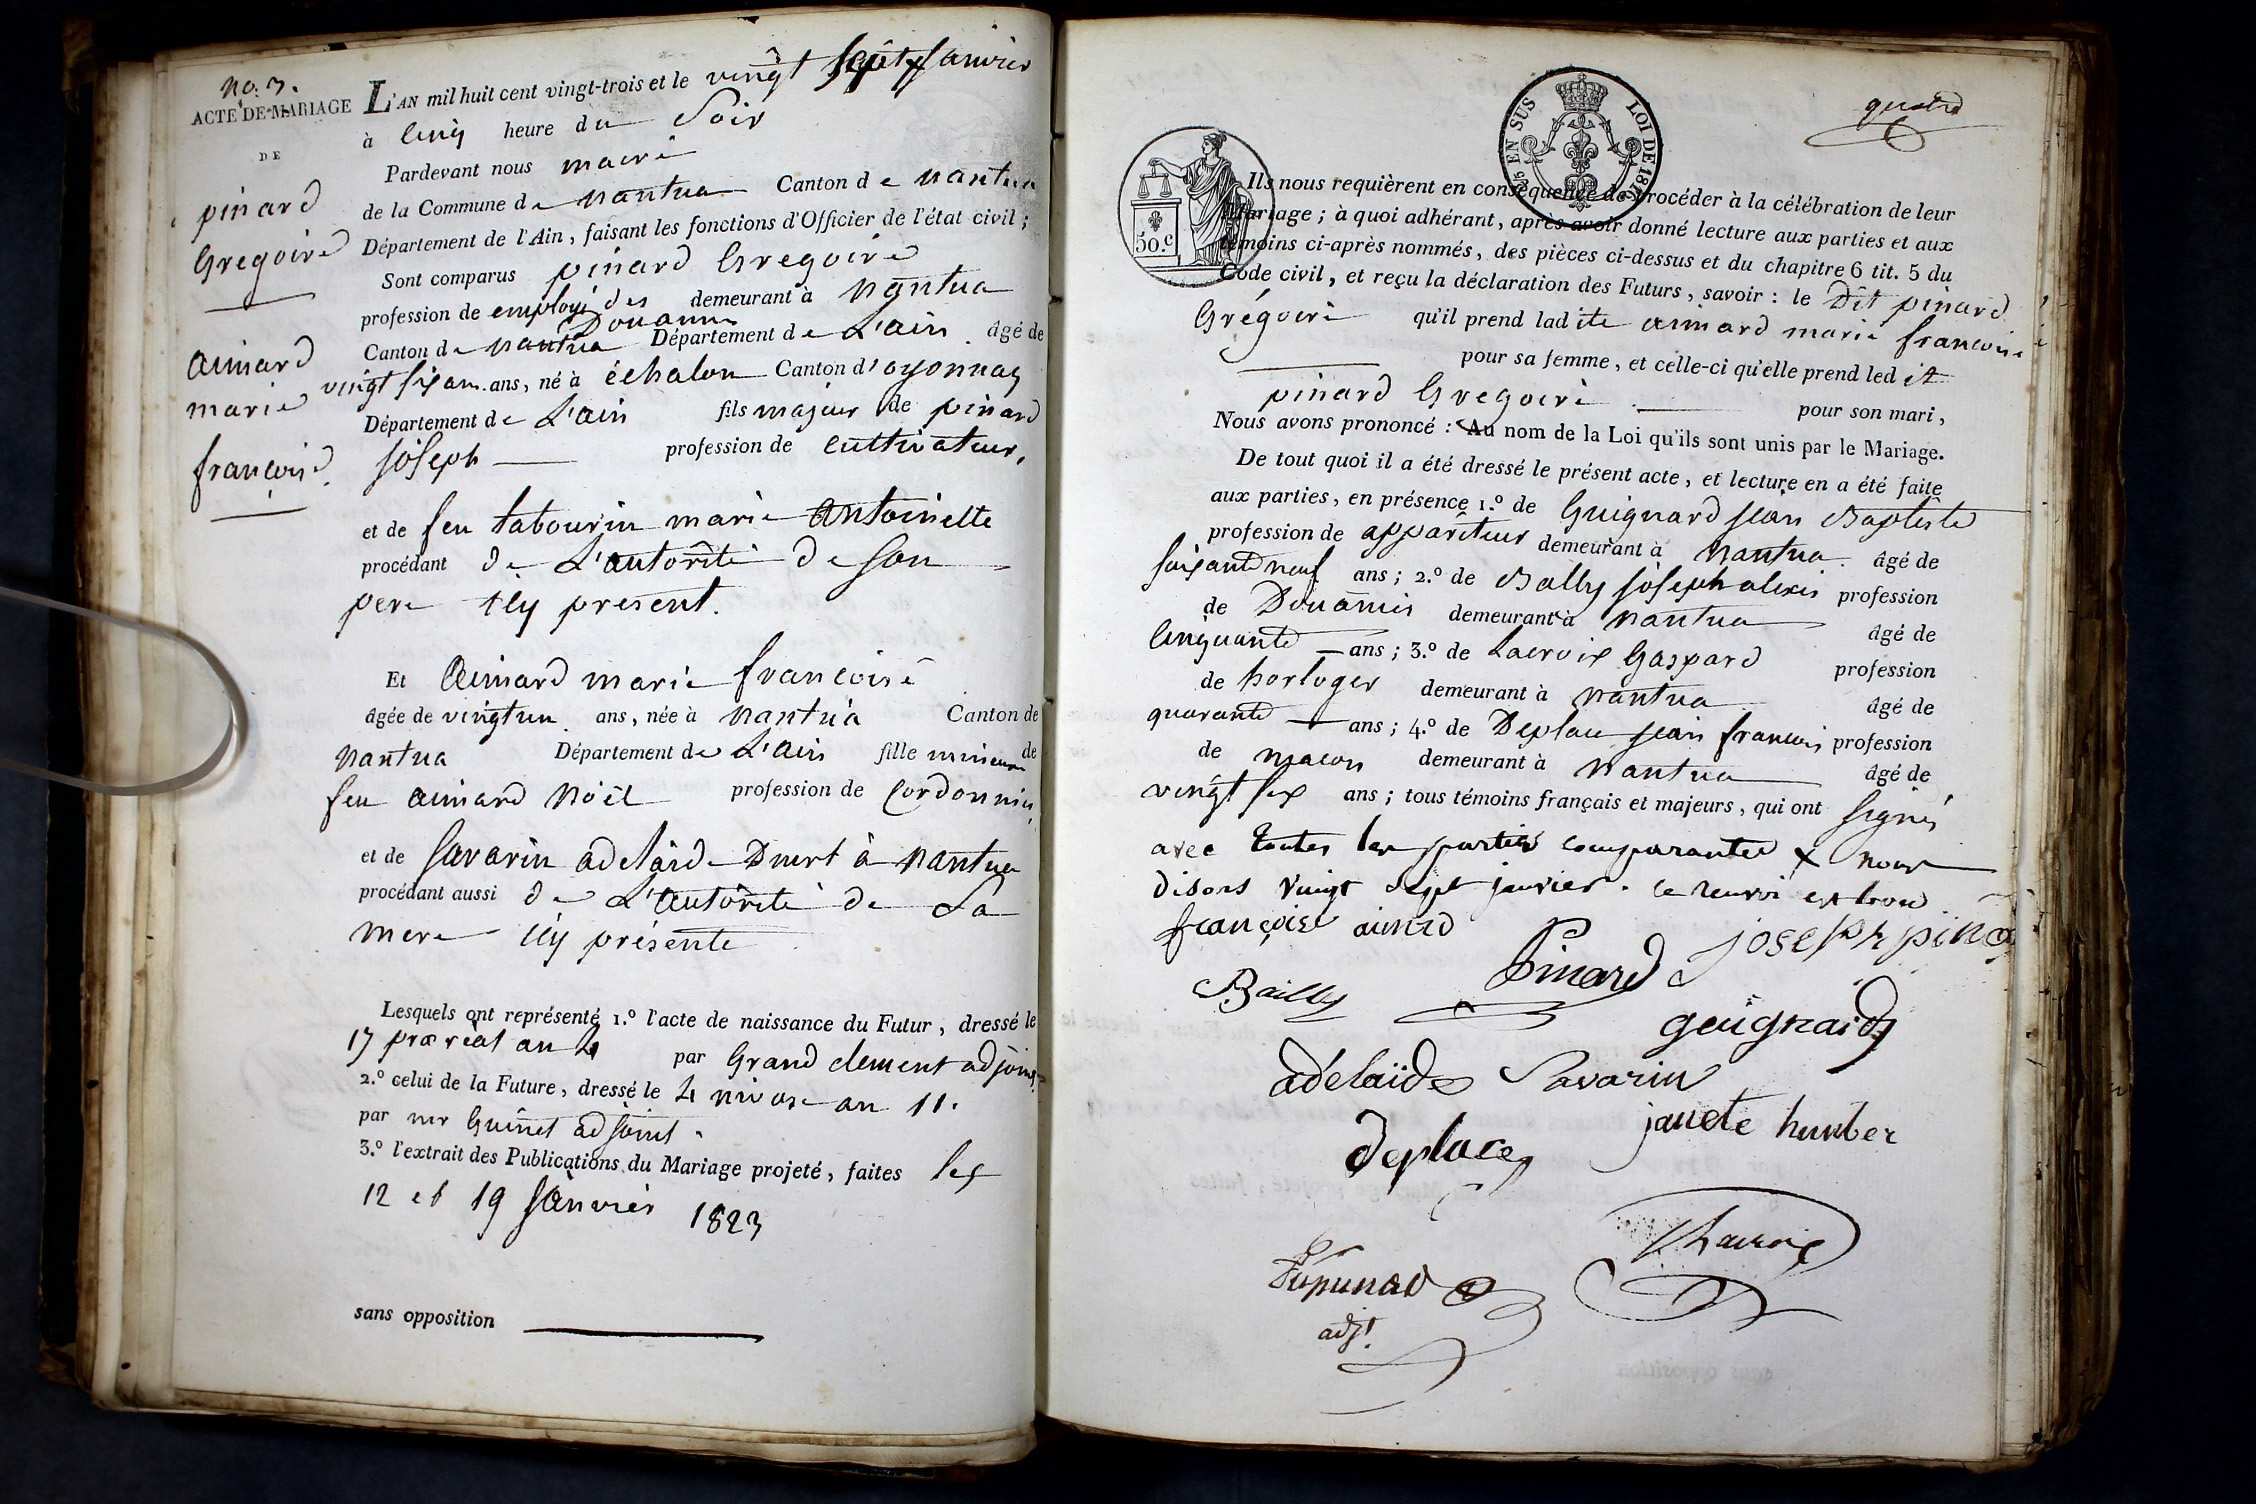 no. 3.
ACTE DE MARIAGE
DE
pinard
Gregoire
aimard
marie
francoise
L'AN mil huit cent vingt-trois et le vingt sept x janvier
à cinq heure du Soir
Pardevant nous maire
de la Commune de nantua Canton de nantua
Département de l'Ain, faisant les fonctions d'Officier de l'état civil ;
Sont comparus pinard Gregoire
profession de employé des Douanne demeurant à nantua
Canton de nantua Département de L'ain âgé de
vingt six ans. ans, né à échalon Canton d'oyonnax
Département de L'ain fils majeur de pinard
joseph profession de cultivateur,
et de feu tabourin marie antoinette
procédant de L'autorité de son
pere icy present.
Et aimard marie francoise
âgée de vingt un ans, née à nantua Canton de
nantua Département de L'ain fille mineure de
feu aimard Noël profession de Cordonnier
et de Savarin adelaïde Dmrt à nantua
procédant aussi de L'autorité de Sa
mere icy présente
Lesquels ont représenté 1.º l'acte de naissance du Futur, dressé le
17 prœreal an 4 par Grand clement adjoint
2.º celui de la Future, dressé le 4 nivose an 11.
par mr Guinet adjoint.
3.º l'extrait des Publications du Mariage projeté, faites les
12 et 19 Janvier 1823
sans opposition
quatre
25 EN SUS LOI DE 1816
50.c
Ils nous requièrent en conséquence de procéder à la célébration de leur
Mariage ; à quoi adhérant, après avoir donné lecture aux parties et aux
témoins ci-après nommés, des pièces ci-dessus et du chapitre 6 tit. 5 du
Code civil, et reçu la déclaration des Futurs, savoir : le Dit pinard
Grégoire qu'il prend lad ite aimard marie francoise
pour sa femme, et celle-ci qu'elle prend led it
pinard Gregoire pour son mari,
Nous avons prononcé : Au nom de la Loi qu'ils sont unis par le Mariage.
De tout quoi il a été dressé le présent acte, et lecture en a été faite
aux parties, en présence 1.º de Guignard jean Baptiste
profession de appariteur demeurant à nantua âgé de
soixante neuf ans ; 2.º de Bally joseph alexis profession
de Douanier demeurant à nantua âgé de
cinquante ans ; 3.º de Lacroix Gaspard profession
de horloger demeurant à nantua âgé de
quarante ans ; 4.º de Deplace jean francois profession
de macon demeurant à nantua âgé de
vingt six ans ; tous témoins français et majeurs, qui ont signés
avec toutes les parties comparantes x nous
disons vingt sept janvier. ce renvoi est bon
françoise aimard
Pinard
joseph pinar
Bailly
guignard
adelaïde Savarin
deplace
janete humber
adjt.